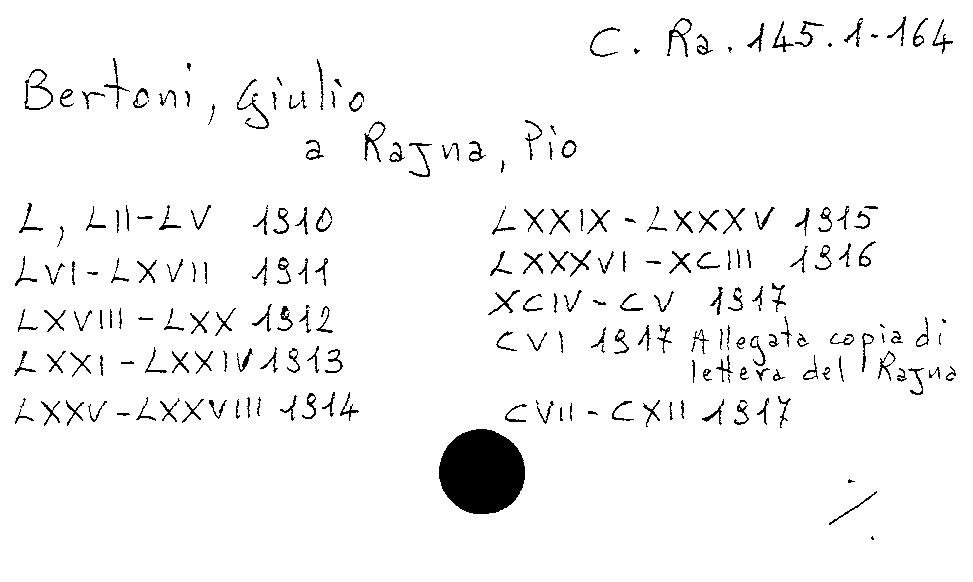 C. Ra. 145.1-164
Bertoni, Giulio
a Rajna, Pio
L, LII-LV 1910
LVI-LXVII 1911
LXVIII-LXX 1912
LXXI-LXXIV 1913
LXXV-LXXVIII 1914
LXXIX-LXXXV 1915
LXXXVI-XCIII 1916
XCIV-CV 1917
CVI 1917 Allegata copia di
lettera del Rajna
CVII-CXII 1917
./.